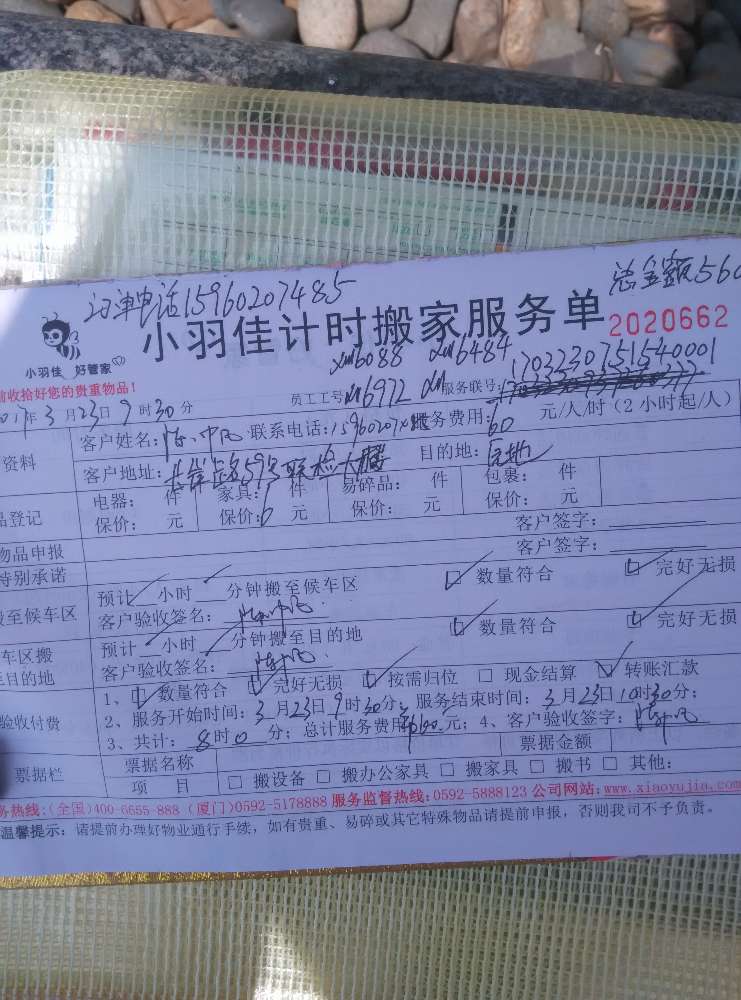 订单电话15960207485
总金额560
小羽佳 好管家
小羽佳计时搬家服务单
2020662
前收拾好您的贵重物品!
员工工号 xm6088 xm6484
xm6972
服务联号: 1703230751540001
2017年3月23日9时30分
资料
客户姓名: 联系电话:15960207 服务费用:60 元/人/时(2小时起/人)
客户地址: 59号联检大楼 目的地:
品登记
电器: 件 家具:1 件 易碎品: 件 包裹: 件
保价: 元 保价: 元 保价: 元 保价: 元
物品申报 客户签字:
特别承诺 客户签字:
搬至候车区
预计 小时 分钟搬至候车区 数量符合 完好无损
客户验收签名:
车区搬
至目的地
预计 小时 分钟搬至目的地 数量符合 完好无损
客户验收签名:
验收付费
1、 数量符合 完好无损 按需归位 □ 现金结算 转账汇款
2、服务开始时间:3月23日9时30分; 服务结束时间:3月23日10时30分;
3、共计:8时0分; 总计服务费用 元; 4、客户验收签字:
票据栏
票据名称 票据金额
项 目 □ 搬设备 □ 搬办公家具 □ 搬家具 □ 搬书 □ 其他:
务热线:(全国)400-6655-888 (厦门)0592-5178888 服务监督热线:0592-5888123 公司网站:www.xiaoyujia.com
温馨提示: 请提前办理好物业通行手续,如有贵重、易碎或其它特殊物品请提前申报,否则我司不予负责。